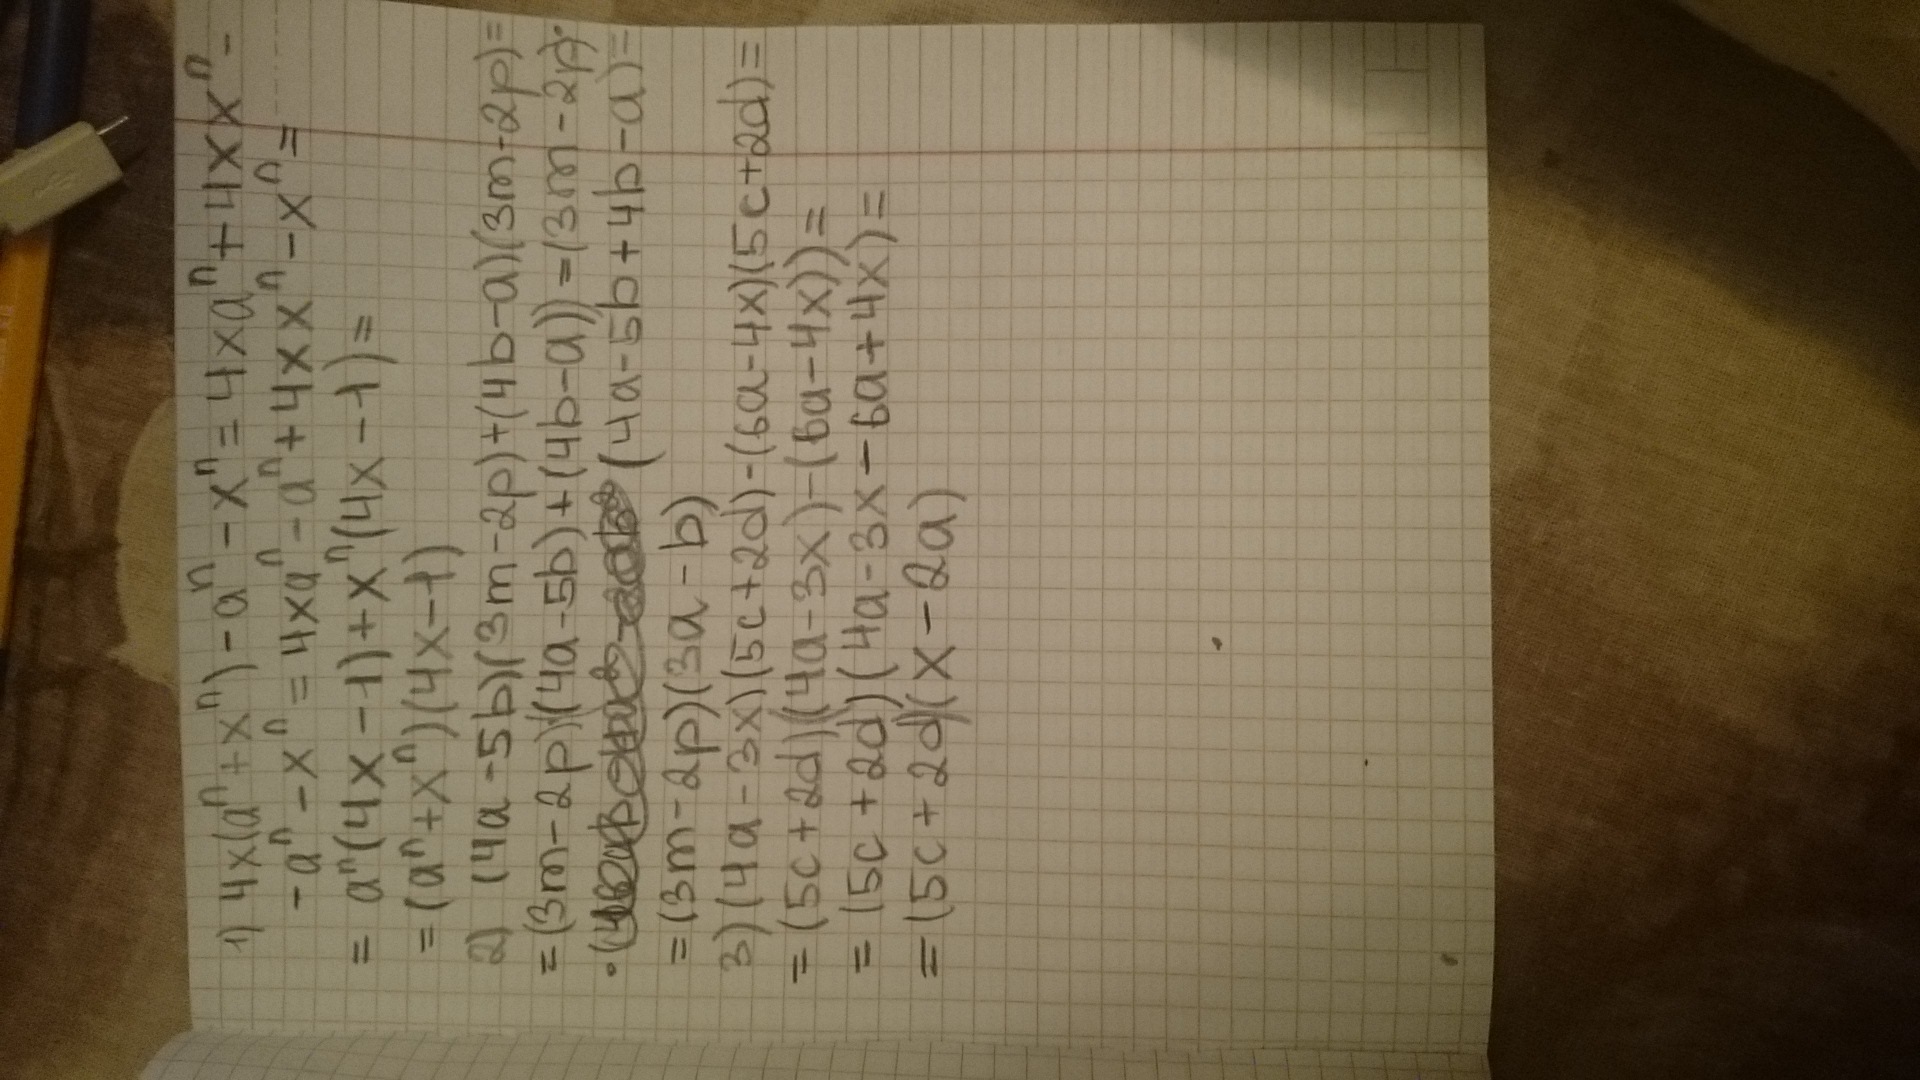 1) 4x(aⁿ+xⁿ)-aⁿ-xⁿ=4xaⁿ+4xxⁿ-
-aⁿ-xⁿ=4xaⁿ-aⁿ+4xxⁿ-xⁿ=
=aⁿ(4x-1)+xⁿ(4x-1)=
=(aⁿ+xⁿ)(4x-1)
2) (4a-5b)(3m-2p)+(4b-a)(3m-2p)=
=(3m-2p)(4a-5b)+(4b-a))=(3m-2p)·
·(4a-5b+4b-a)=
=(3m-2p)(3a-b)
3)(4a-3x)(5c+2d)-(6a-4x)(5c+2d)=
=(5c+2d)((4a-3x)-(6a-4x))=
=(5c+2d)(4a-3x-6a+4x)=
=(5c+2d)(x-2a)